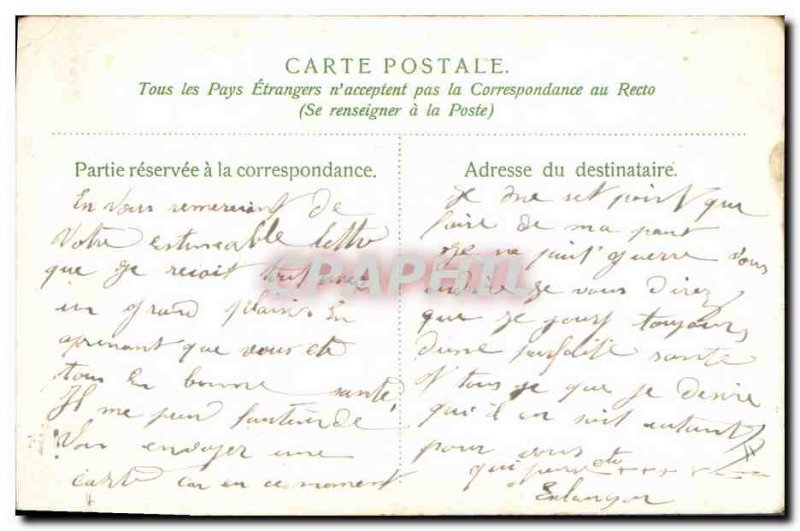 CARTE POSTALE.
Tous les Pays Étrangers n'acceptent pas la Correspondance au Recto
(Se renseigner à la Poste)
Partie réservée à la correspondance.
En vous remerciant de
votre estimeable lettre
que je recoit
un grand plaisir En
aprenant que vous ete
tous En bonne santé
Il me peu
Vous envoyer une
carte car en ce moment
Adresse du destinataire.
Je me set point que
faire de ma part
je ne puit guerre vous
je vous direz
que je jouis toujours
dune parfaite sante
tous je que je desire
qui il en soit autant
pour vous
qui
CPAPHIL